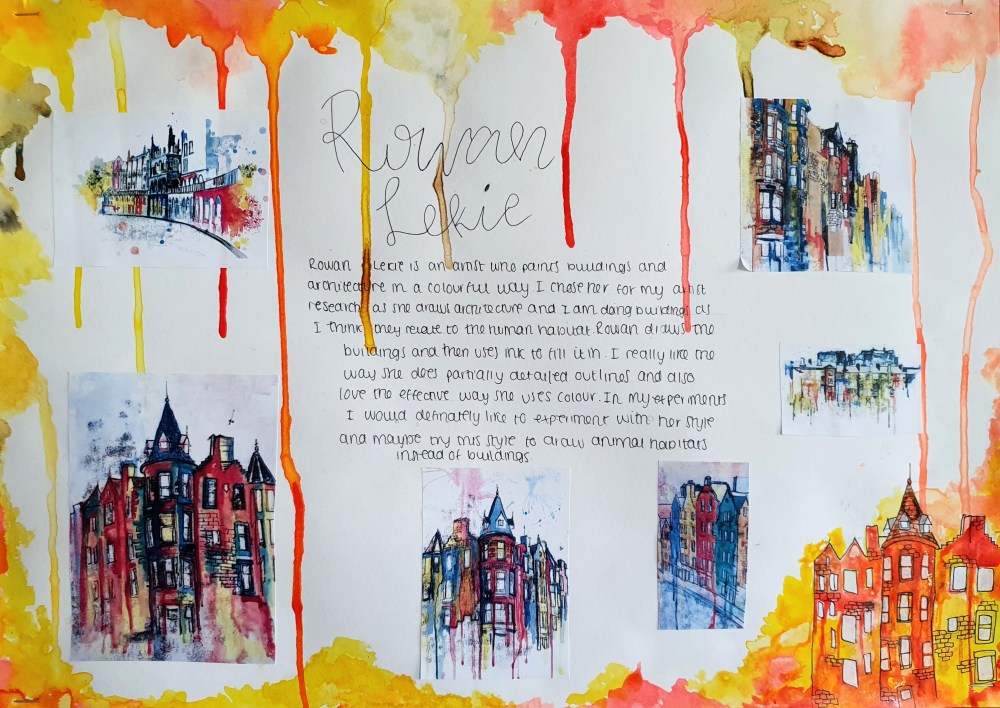 Rowan
Lekie
Rowan Lekie is an artist who paints buildings and
architecture in a colourful way I chose her for my artist
research as she draws architecture and I am doing buildings as
I think they relate to the human habitat. Rowan draws the
buildings and then uses ink to fill it in. I really like the
way she does partially detailed outlines and also
love the effective way she uses colour. In my experiments
I would definately like to experiment with her style
and maybe try this style to draw animal habitats
instead of buildings